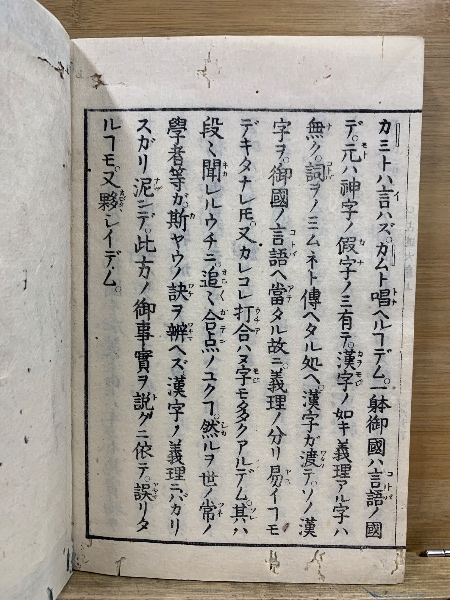 カミトハ言ハズ。カムト唱ヘルヿデム。一躰御國ハ言語ノ國
デ。元ハ神字ノ假字ノミ有テ。漢字ノ如キ義理アル字ハ
無ク。詞ヲノミムネト傳ヘタル処ヘ。漢字ガ渡テ。ソノ漢
字ヲ。御國ノ言語ヘ當タル故ニ。義理ノ分リ易イヿモ
デキタナレ𪜈。又カレコレ打合ハヌ字モタクアルデム。其ハ
段〻聞レルウチニ。追〻合点ノユクヿ。然ルヲ世ノ常ノ
學者等ガ。斯ヤウノ訣ヲ辨ヘズ。漢字ノ義理ニバカリ
スガリ泥ンデ。此方ノ御事實ヲ説グニ依テ。誤リタ
ルヿモ。又夥シイデム。